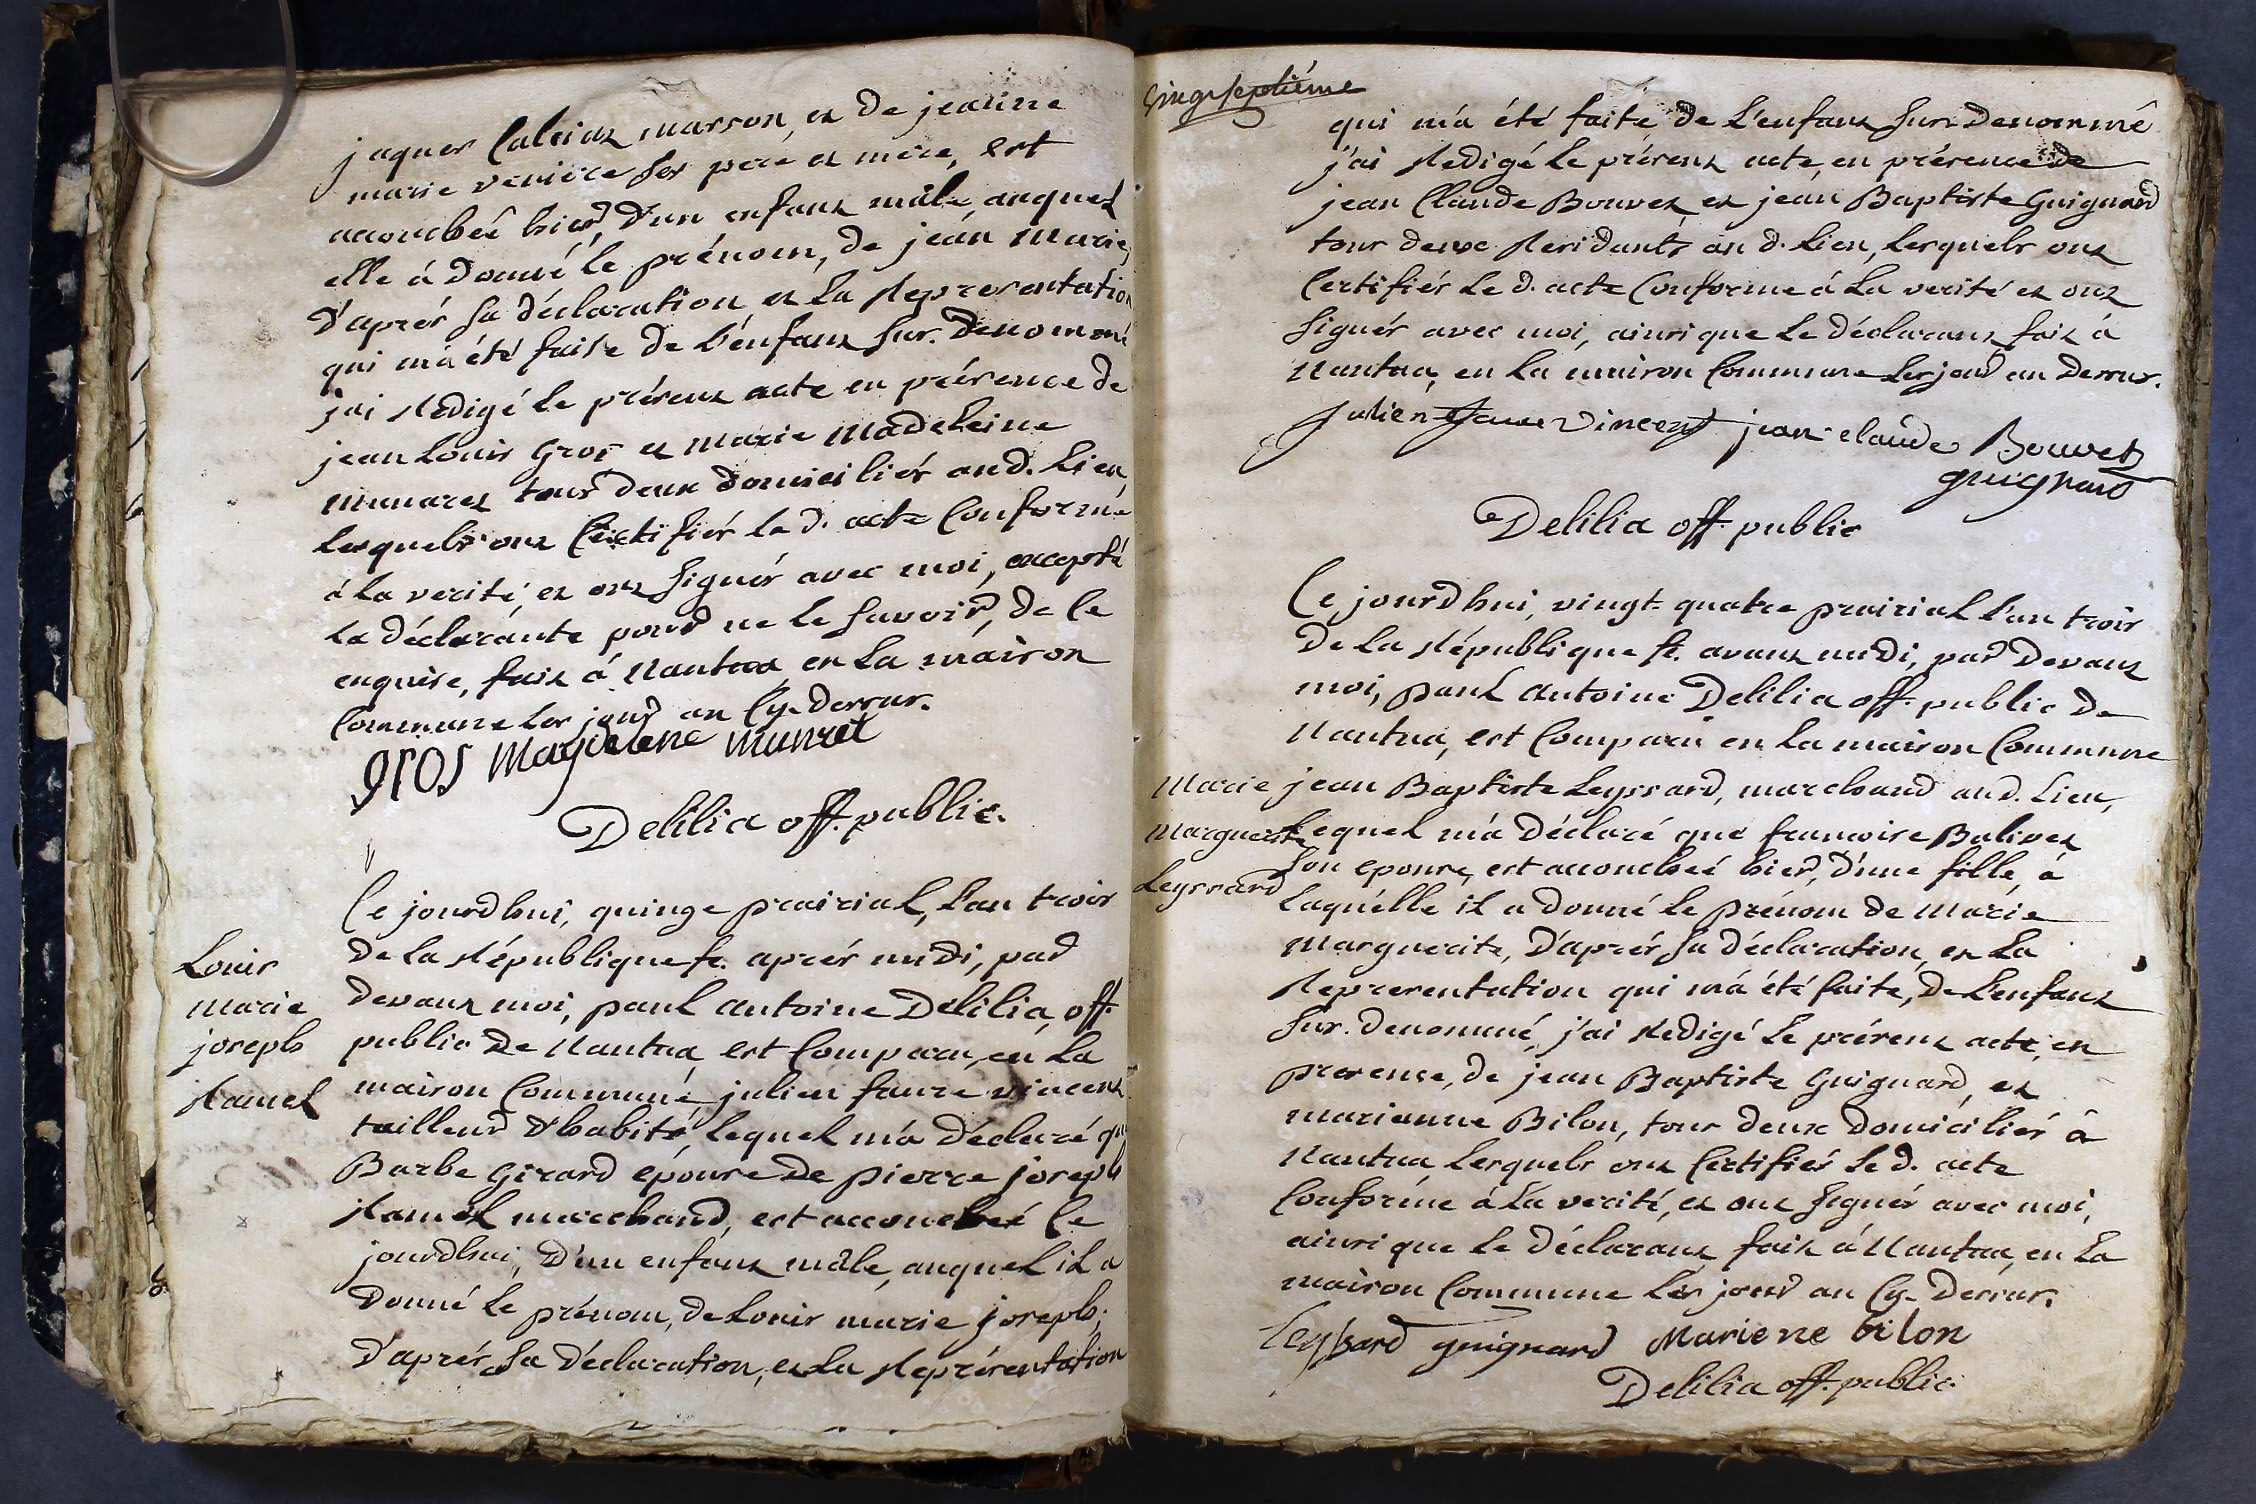 jaques Calviaz masson, et de jeanne
marie veniere ses pere et mere, est
accouchée hier, d'un enfant mâle, auquel
elle á donné le prénom, de jean Marie,
d'aprés sa déclaration et la Representation
qui m'a été faite de l'enfant sus. denommé
j'ai Redigé le présent acte en présence de
jean Louis Gros et Marie Madeleine
Munaret tous deux domiciliés aud. Lieu,
lesquels ont Certifiés le d. acte Conforme
á la verité, et ont Signés avec moi, excepté
la déclarante pour ne le savoir, de Ce
enquise, fait á Nantua, en la maison
Commune les jour an Cy. dessus.
gros Magdelene munret
Delilia off. public.
Ce jourdhui, quinze prairial, l'an trois
de la République fr. aprés midi, par
devant moi, paul antoine Delilia, off.
public de Nantua, est Comparu, en La
maison Commune, julien favre vincent
tailleur d'habits, lequel m'a déclaré que
Barbe Girard épouse de pierre joseph
Ramel marchand, est accouchée Ce
jourdhui, d'un enfant mâle, auquel il a
donné le prénom, de Louis marie joseph,
d'aprés, sa déclaration, et La Représentation
Louis
marie
joseph
Ramel
Vingt septiéme
qui m'a été faite de L'enfant sus. denommé
j'ai Redigé le présent acte, en présence de
jean Claude Bouvet, et jean Baptiste Guignard
tous deux Residants au d. lieu, lesquels ont
Certifiés le d. acte Conforme á La verité et ont
signés avec moi, ainsi que le déclarant, fait á
Nantua, en la maison Commune les jour an dessus.
Julien favre vincent jean claude Bouvet
guignard
Delilia off. public
Ce jourdhui, vingt-quatre prairial l'an trois
de la République fr. avant midi, par devant
moi, paul antoine Delilia off. public de
Nantua, est Comparu en la maison Commune
jean Baptiste Leyssard, marchand aud. Lieu,
Lequel m'a déclaré que francoise Balivet
son epouse, est accouchée hier, d'une fille, á
Laquelle il a donné le prénom de Marie
marguerite, d'aprés sa déclaration, et La
Representation qui m'a été faite, de L'enfant
sus. denommé, j'ai Redigé le présent acte, en
presence, de jean Baptiste Guignard, et
marianne Bilon, tous deux domiciliés á
Nantua, Lesquels ont Certifiés le d. acte
Conforme á La verité, et ont signés avec moi,
ainsi que le déclarant, fait á Nantua, en La
maison Commune les jour an Cy. dessus.
Leyssard guignard Mariene bilon
Delilia off. public.
Marie
Marguerite
Leyssard